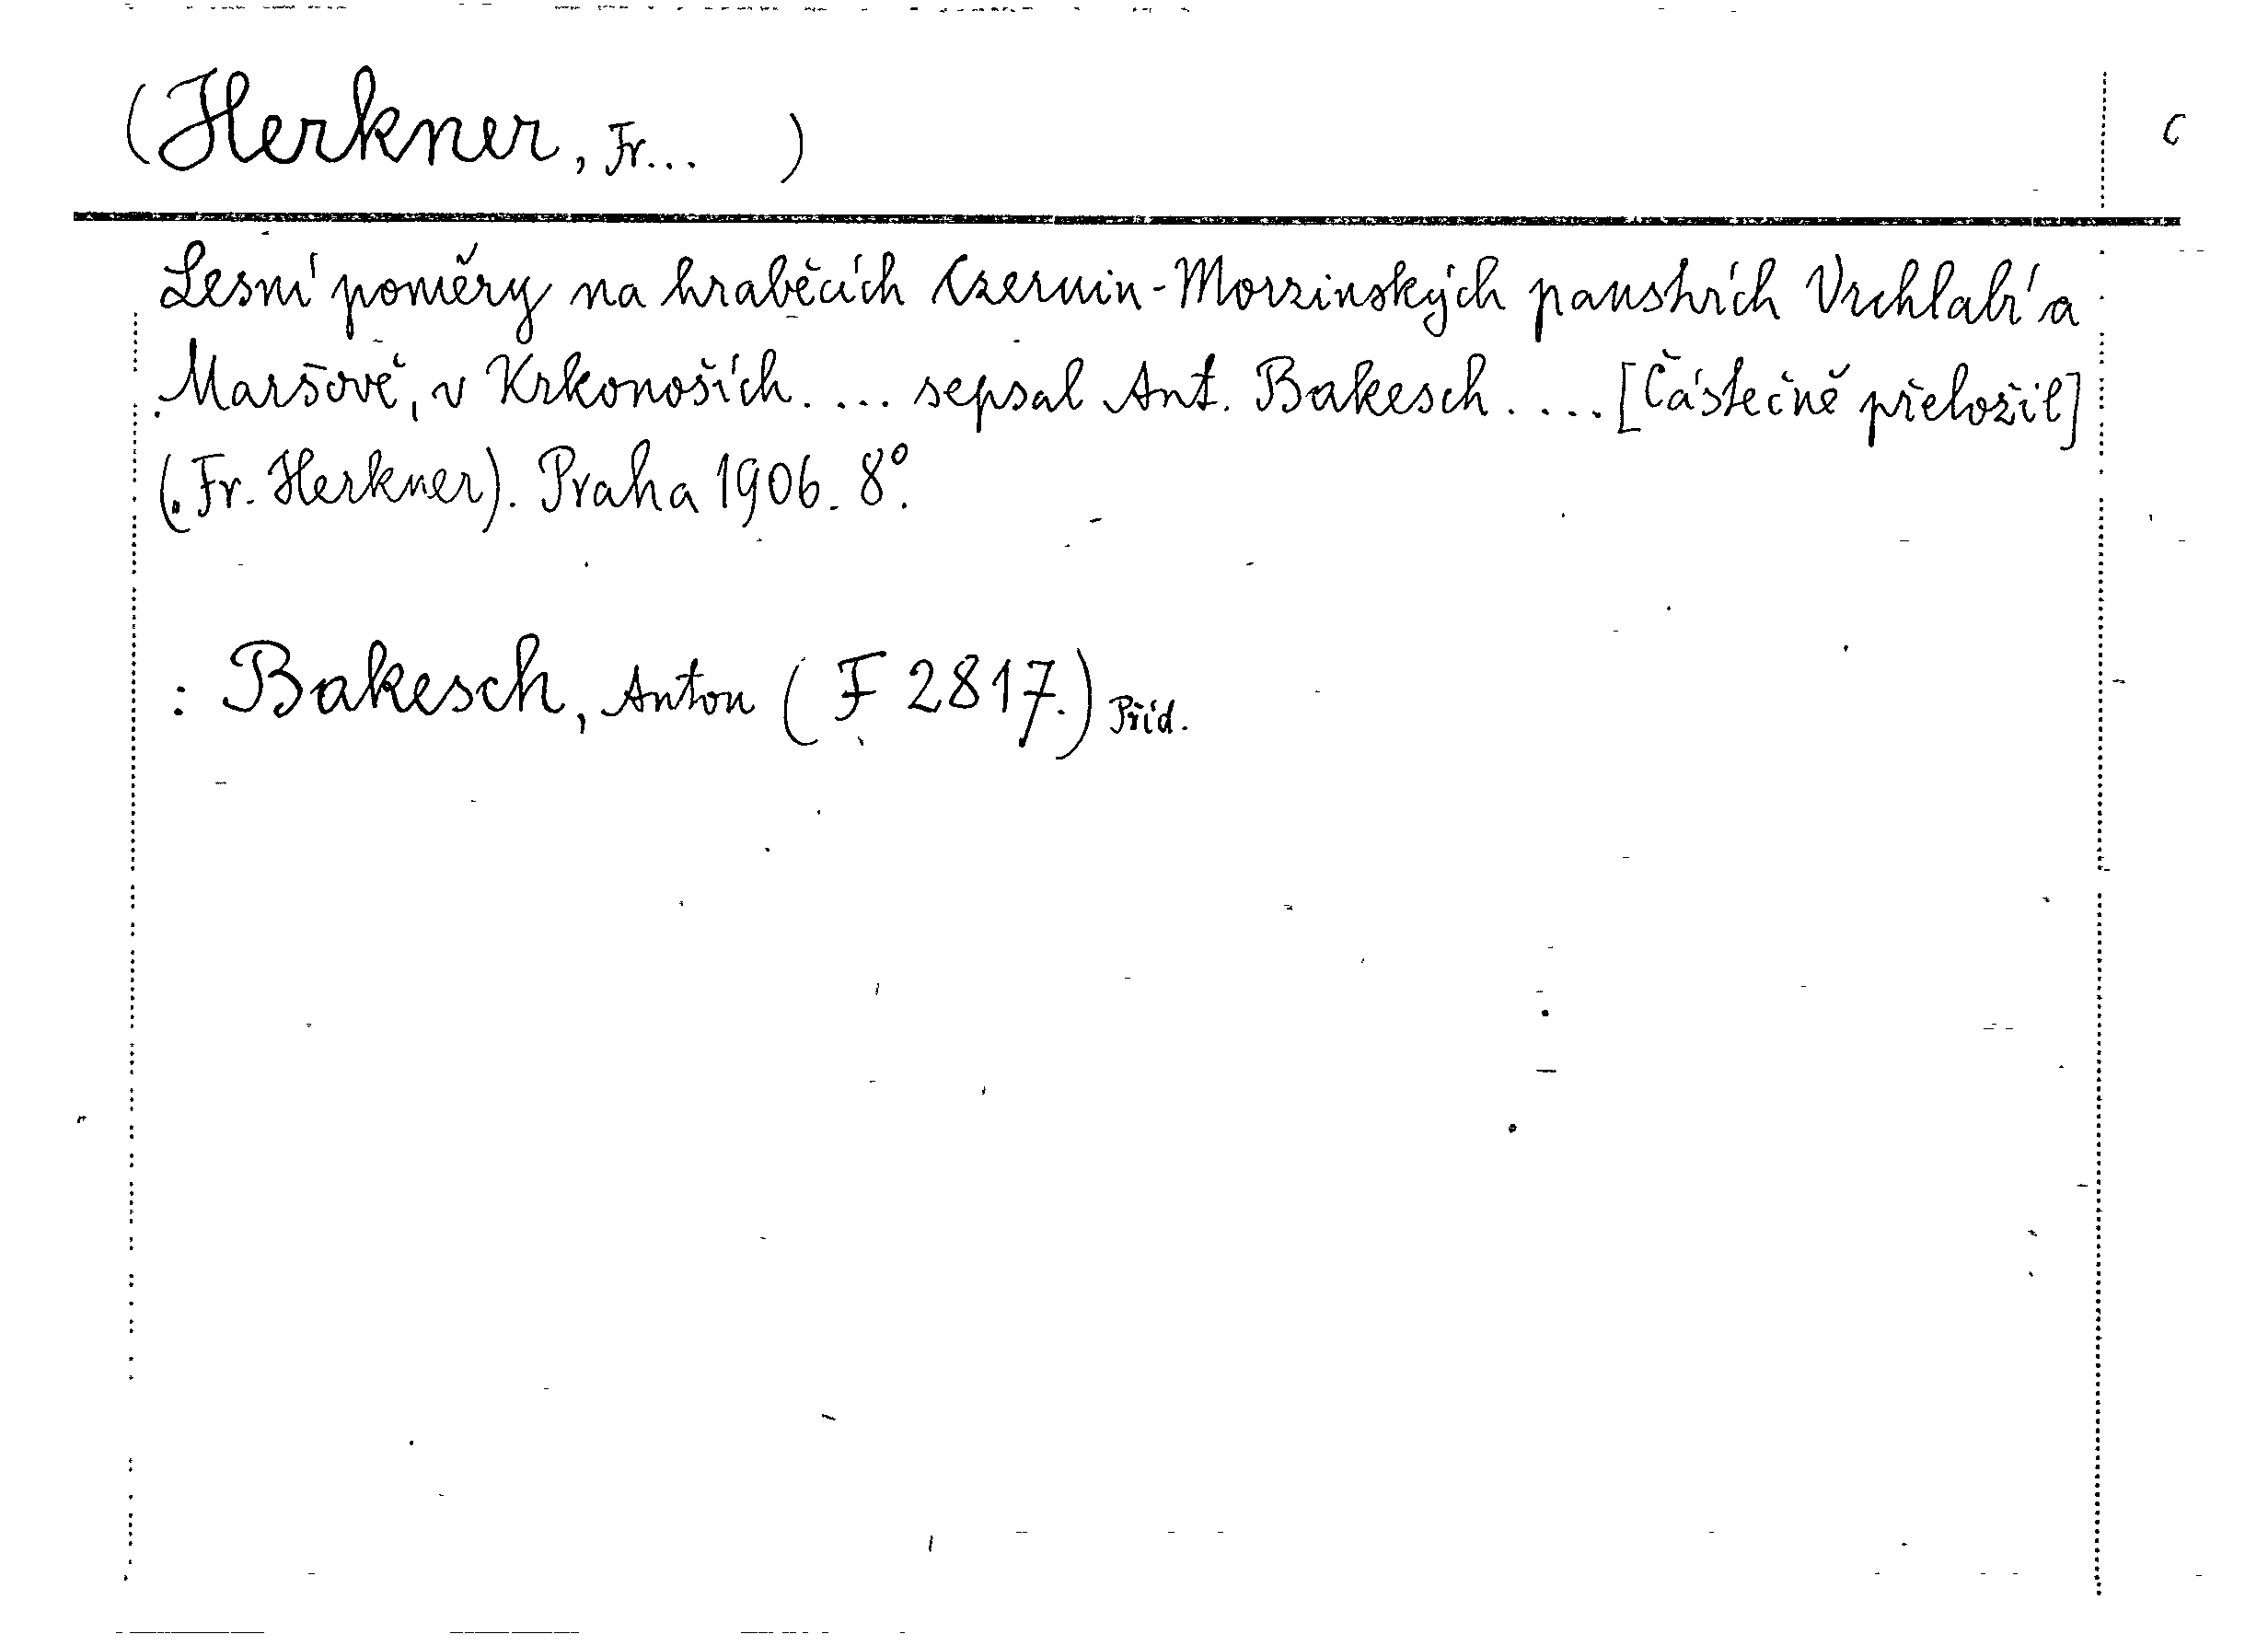 (Herkner, Fr... )
C
Lesní poměry na hraběcích Czernin-Morzinských panstvích Vrchlabí a
Maršově, v Krkonoších. ... sepsal Ant. Bakesch. ... [Částečně přeložil]
(. Fr. Herkner). Praha 1906. 8°.
: Bakesch, Anton (F 2817.) Příd.